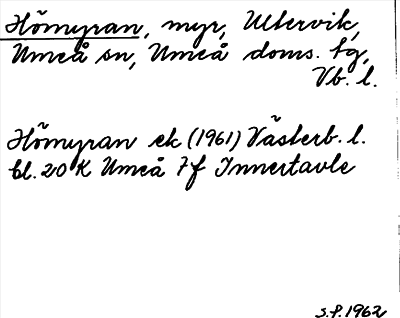 Hömyran, myr, Ultervik,
Umeå sn, Umeå doms. tg,
Vb. l.
Hömyran ek (1961) Västerb. l.
bl. 20 K Umeå 7f Innertavle
S.F. 1962